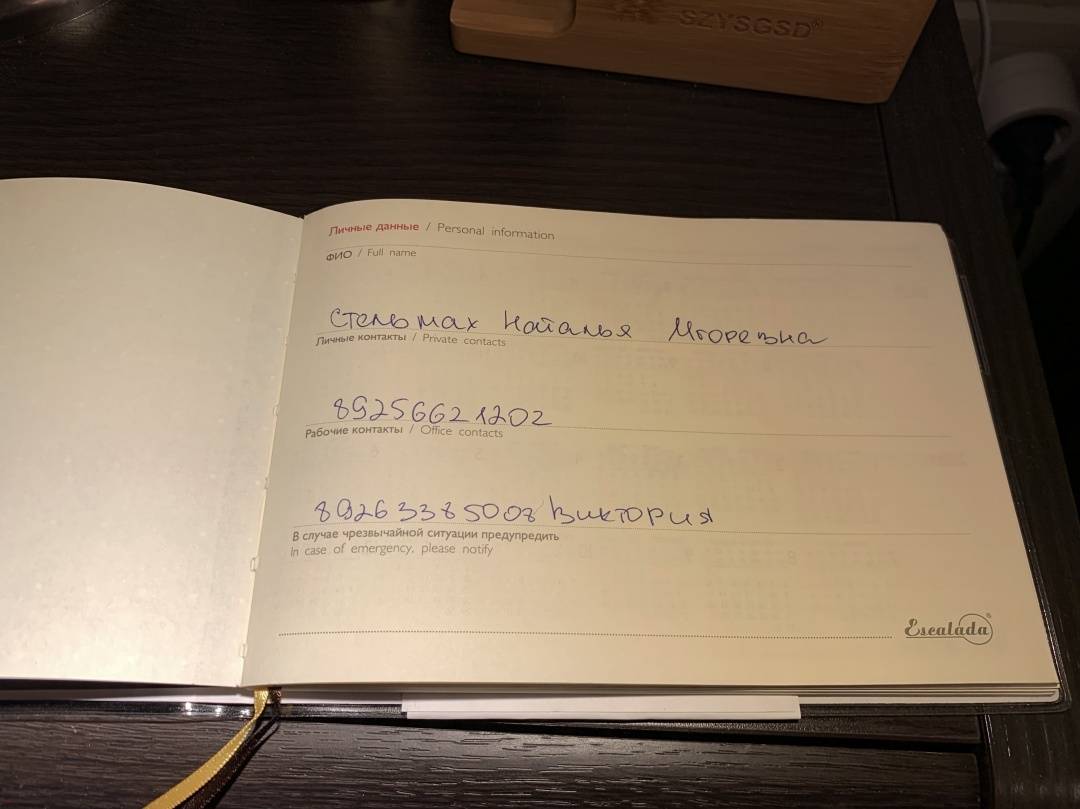 SZYSGSD®
Личные данные / Personal information
ФИО / Full name
Стельмах Наталья Игоревна
Личные контакты / Private contacts
89256621202
Рабочие контакты / Office contacts
89263385008 Виктория
В случае чрезвычайной ситуации предупредить
In case of emergency, please notify
Escalada®